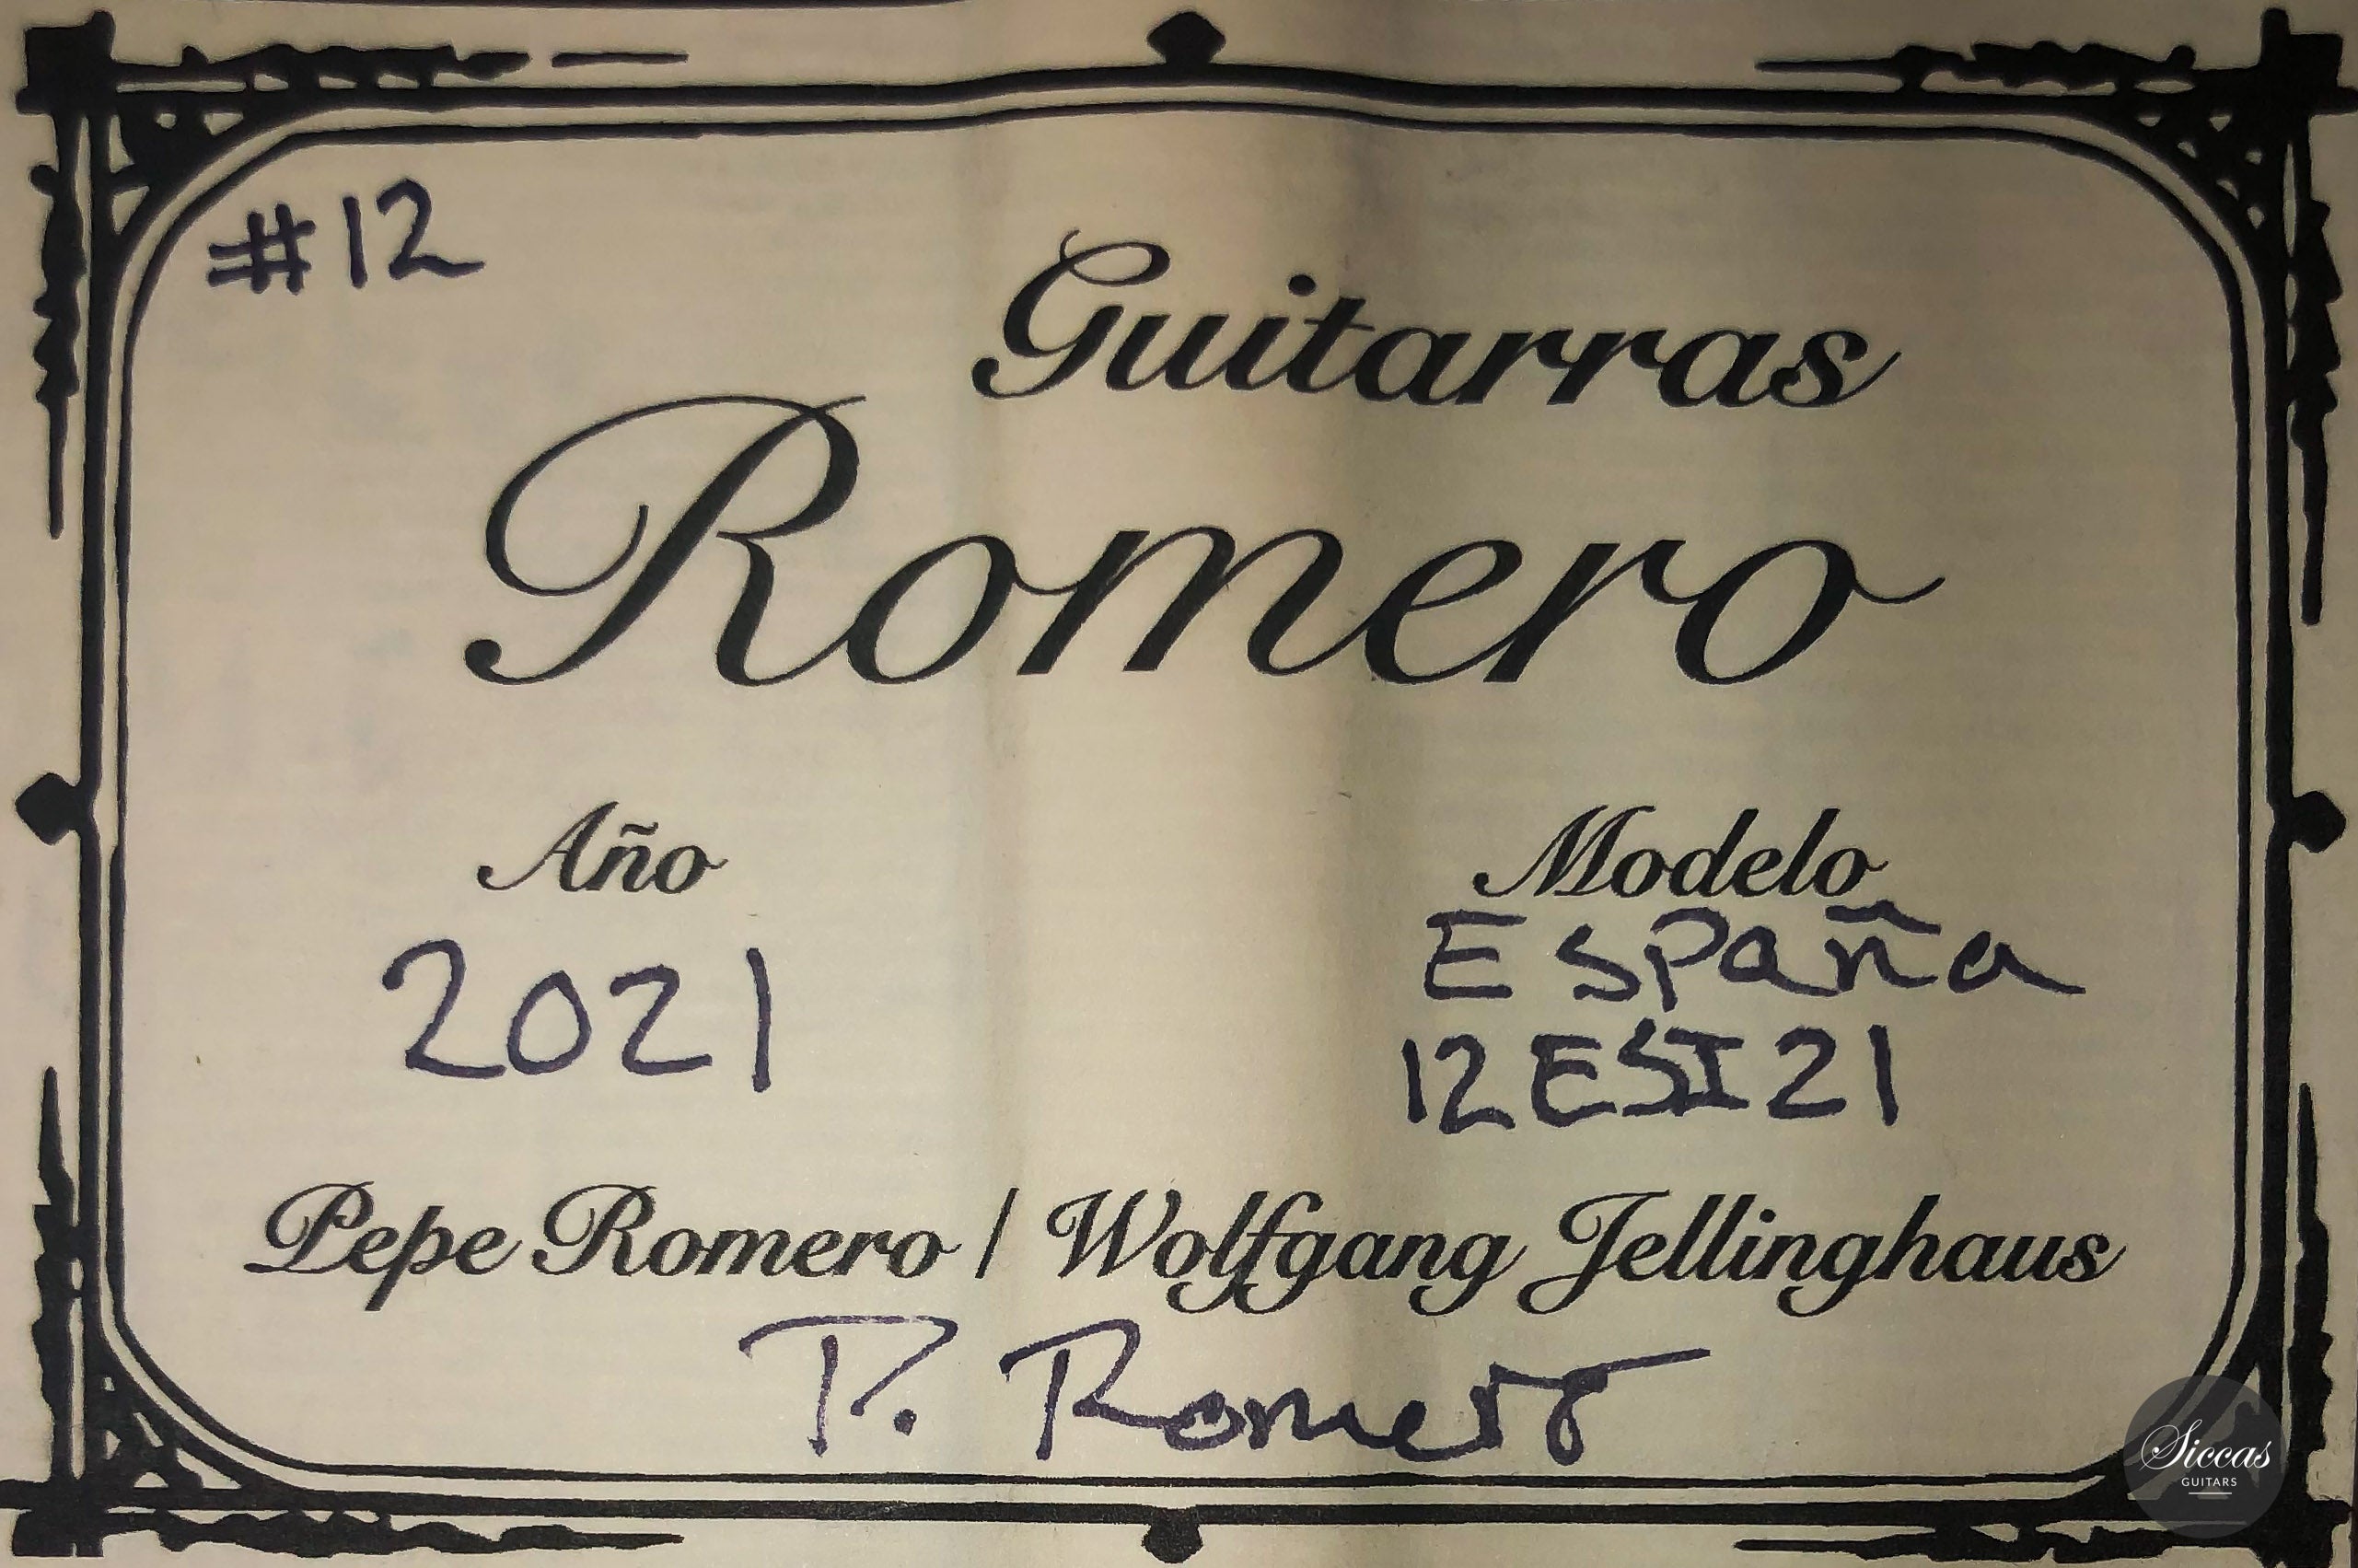 #12
Guitarras
Romero
Año
2021
Modelo
España
12ESI21
Pepe Romero / Wolfgang Jellinghaus
P. Romero
Siccas
GUITARS